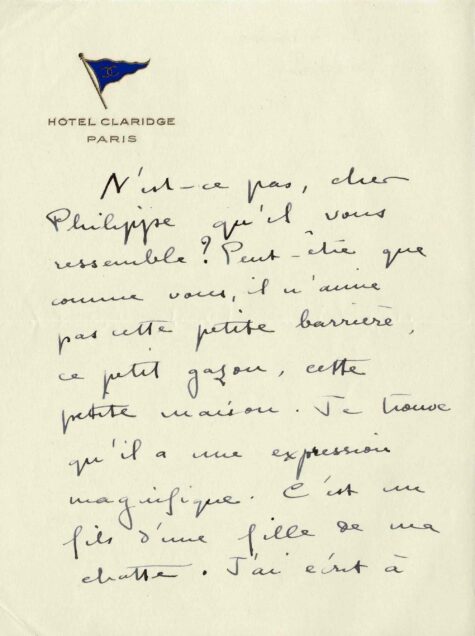 HOTEL CLARIDGE
PARIS
N'est-ce pas, cher
Philippe qu'il vous
ressemble? Peut-être que
comme vous, il n'aime
pas cette petite barrière,
ce petit gazon, cette
petite maison. Je trouve
qu'il a une expression
magnifique. C'est un
fils d'une fille de ma
chatte. J'ai écrit à